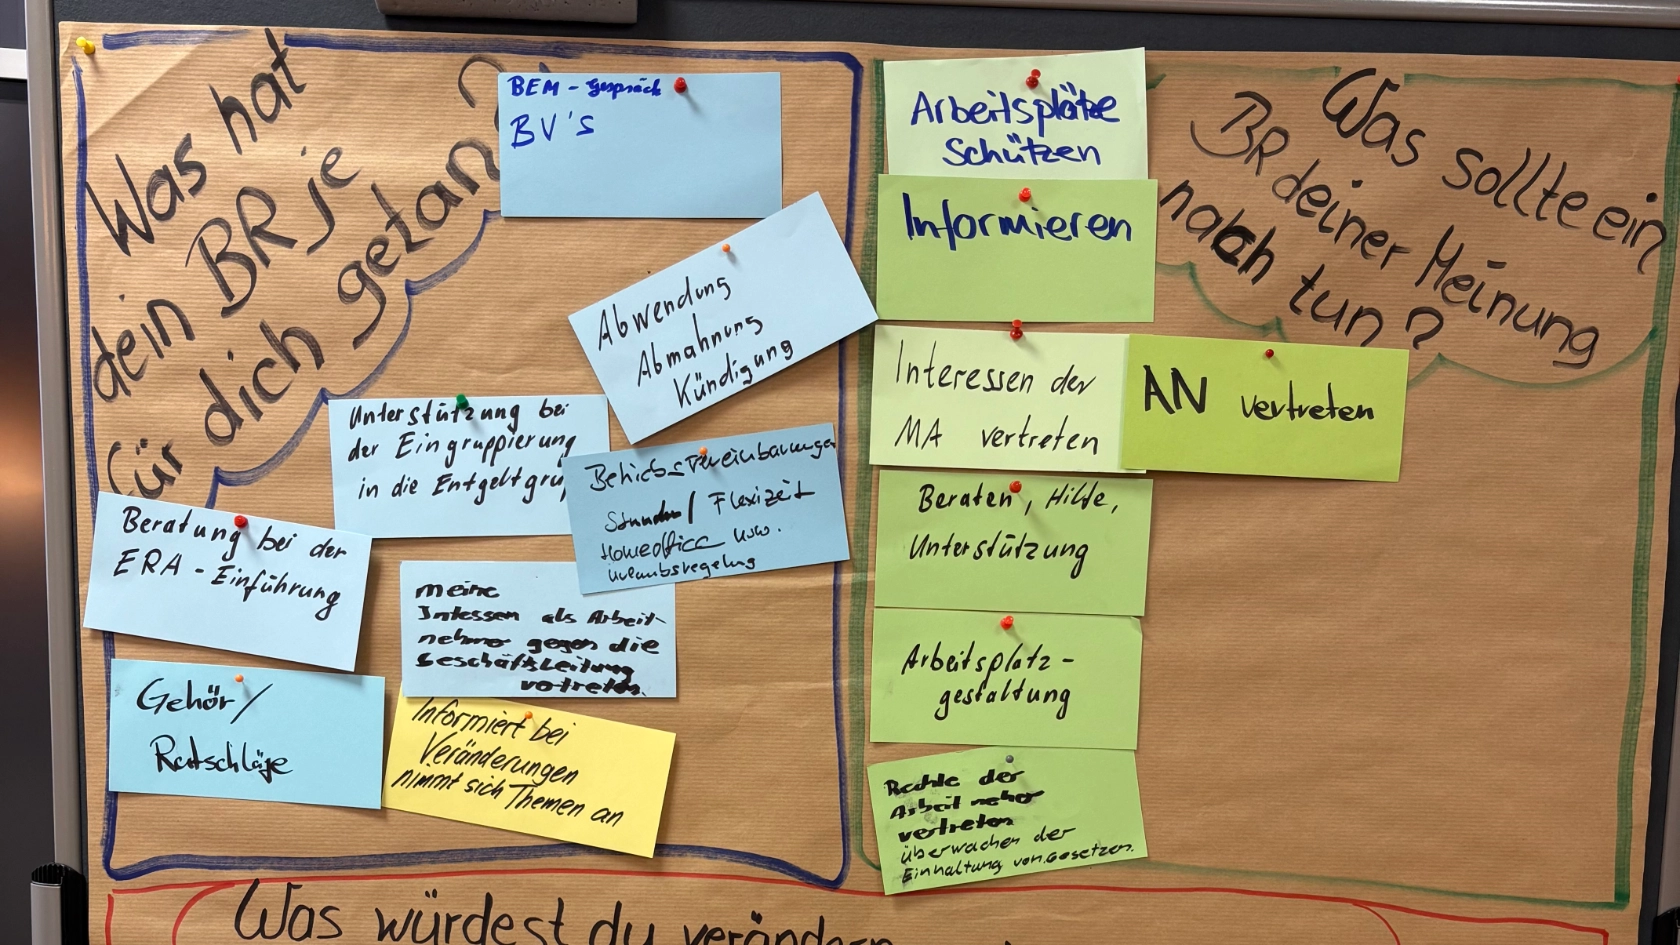 Was hat
dein BR je
für dich getan?
BEM - Gespräch
BV's
Abwendung
Abmahnung
Kündigung
Unterstützung bei
der Eingruppierung
in die Entgeltgru
Betriebsvereinbarungen
Stunden / Flexizeit
Homeoffice usw.
Urlaubsregelung
Beratung bei der
ERA - Einführung
meine
Intessen als Arbeit-
nehmer gegen die
Geschäftsleitung
vertreten.
Gehör/
Ratschläge
Informiert bei
Veränderungen
nimmt sich Themen an
Was sollte ein
BR deiner Meinung
nach tun?
Arbeitsplätze
Schützen
Informieren
Interessen der
MA vertreten
AN vertreten
Beraten, Hilfe,
Unterstützung
Arbeitsplatz-
gestaltung
Rechte der
Arbeitnehmer
vertreten
überwachen der
Einhaltung von Gesetzen.
Was würdest du verändern